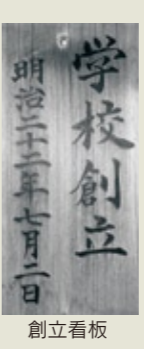 学校創立
明治二十二年七月二日
創立看板